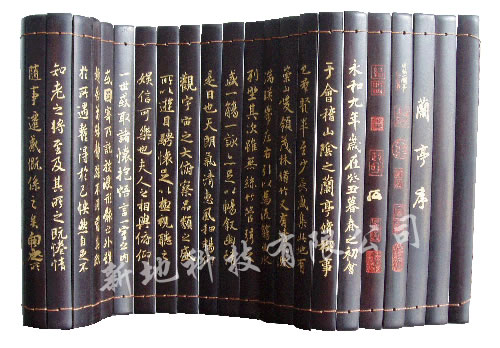 蘭亭序
永和九年歲在癸丑暮春之初會
于會稽山陰之蘭亭脩禊事
也群賢畢至少長咸集此地有
崇山峻領茂林脩竹又有清流激
湍映帶左右引以為流觴曲水
列坐其次雖無絲竹管弦之
盛一觴一詠亦足以暢敘幽情
是日也天朗氣清惠風和暢仰
觀宇宙之大俯察品類之盛
所以遊目騁懷足以極視聽之
娛信可樂也夫人之相與俯仰
一世或取諸懷抱悟言一室之內
或因寄所託放浪形骸之外雖
趣舍萬殊靜躁不同當其欣
於所遇蹔得於己怏然自足不
知老之將至及其所之既惓情
隨事遷感慨係之矣向之所
新地科技有限公司